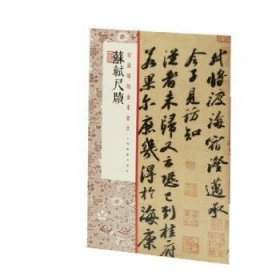 蘇軾尺牘
軾將渡海宿澄邁承
令子見訪知
從者未歸又云恐已到桂府
若果尔庶幾得於海康